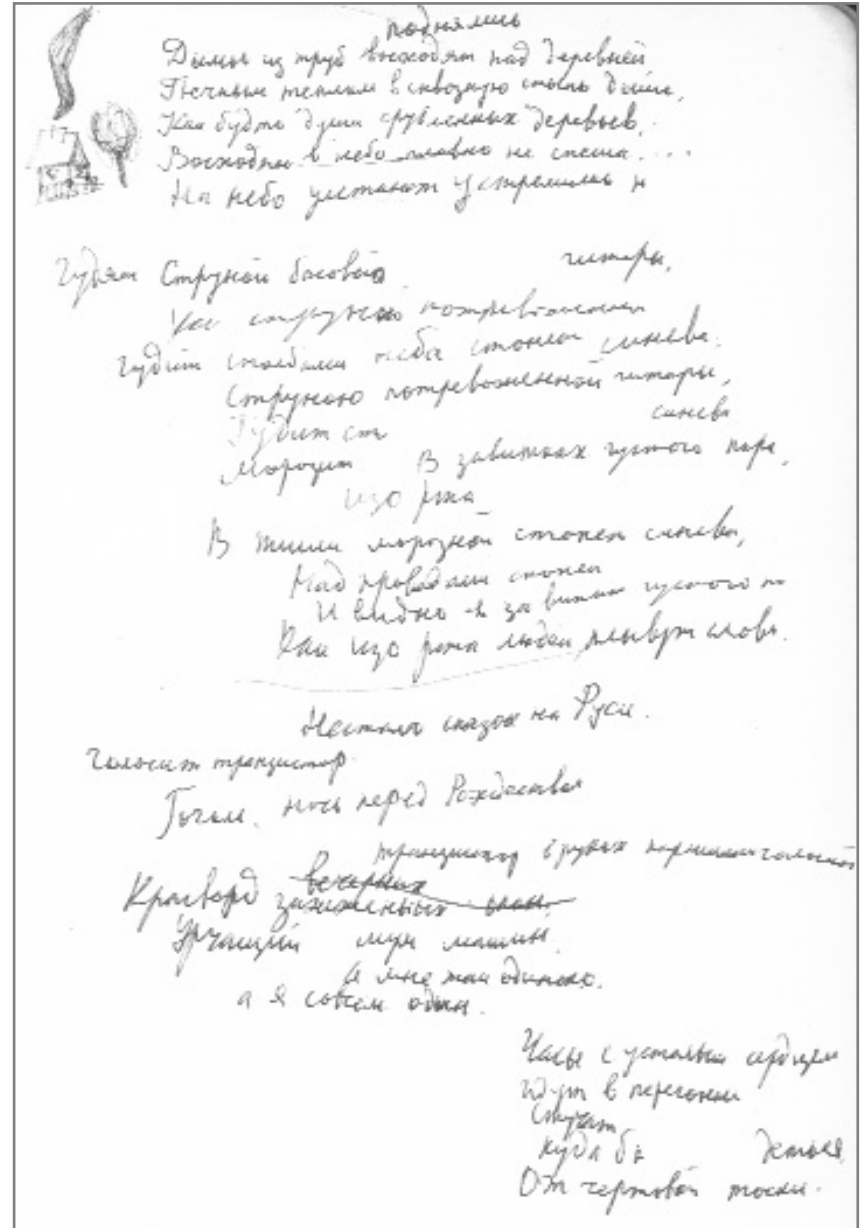 поднялись
Дымы из труб восходят над деревней
Печным теплом в сквозную стынь дыша,
Как будто души срубленных деревьев,
Восходят в небо плавно не спеша...
На небо улетают устремились и
Гудят Струной басовой гитары,
Как струною потревоженной
гудит столбами неба стонет синева.
Струною потревоженной гитары,
Гудит сто синева
Морозит В завитках густого пара,
изо рта
В тиши морозной стонет синева,
Над проводами стонет
И видно в завитках густого па
Как изо рта людей плывут слова.
Нестало сказок на Руси.
Голосит транзистор
Гоголь. Ночь перед Рождества
транзистор в руках
Кросворд вечерних
зажженных окон.
Урчащий шум машин.
И мне так одиноко.
а я совсем один.
Часы с усталым сердцем
идут в перегонки
Стучат
куда бы деться
От чертовой тоски.